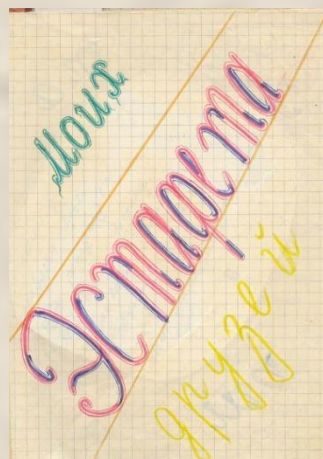 моих
Эстафета
друзей